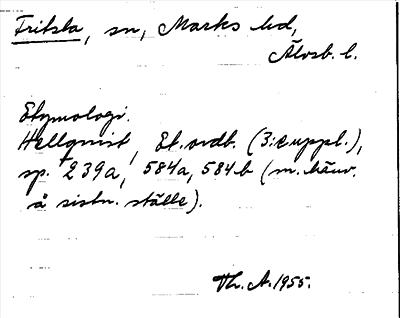 Fritsla, sn, Marks hd,
Älvsb. l.
Etymologi.
Hellqvist, Et. ordb. (3:e uppl.),
sp. 239a, 584a, 584b (m. hänv.
å sistn. ställe).
Th. A. 1955.